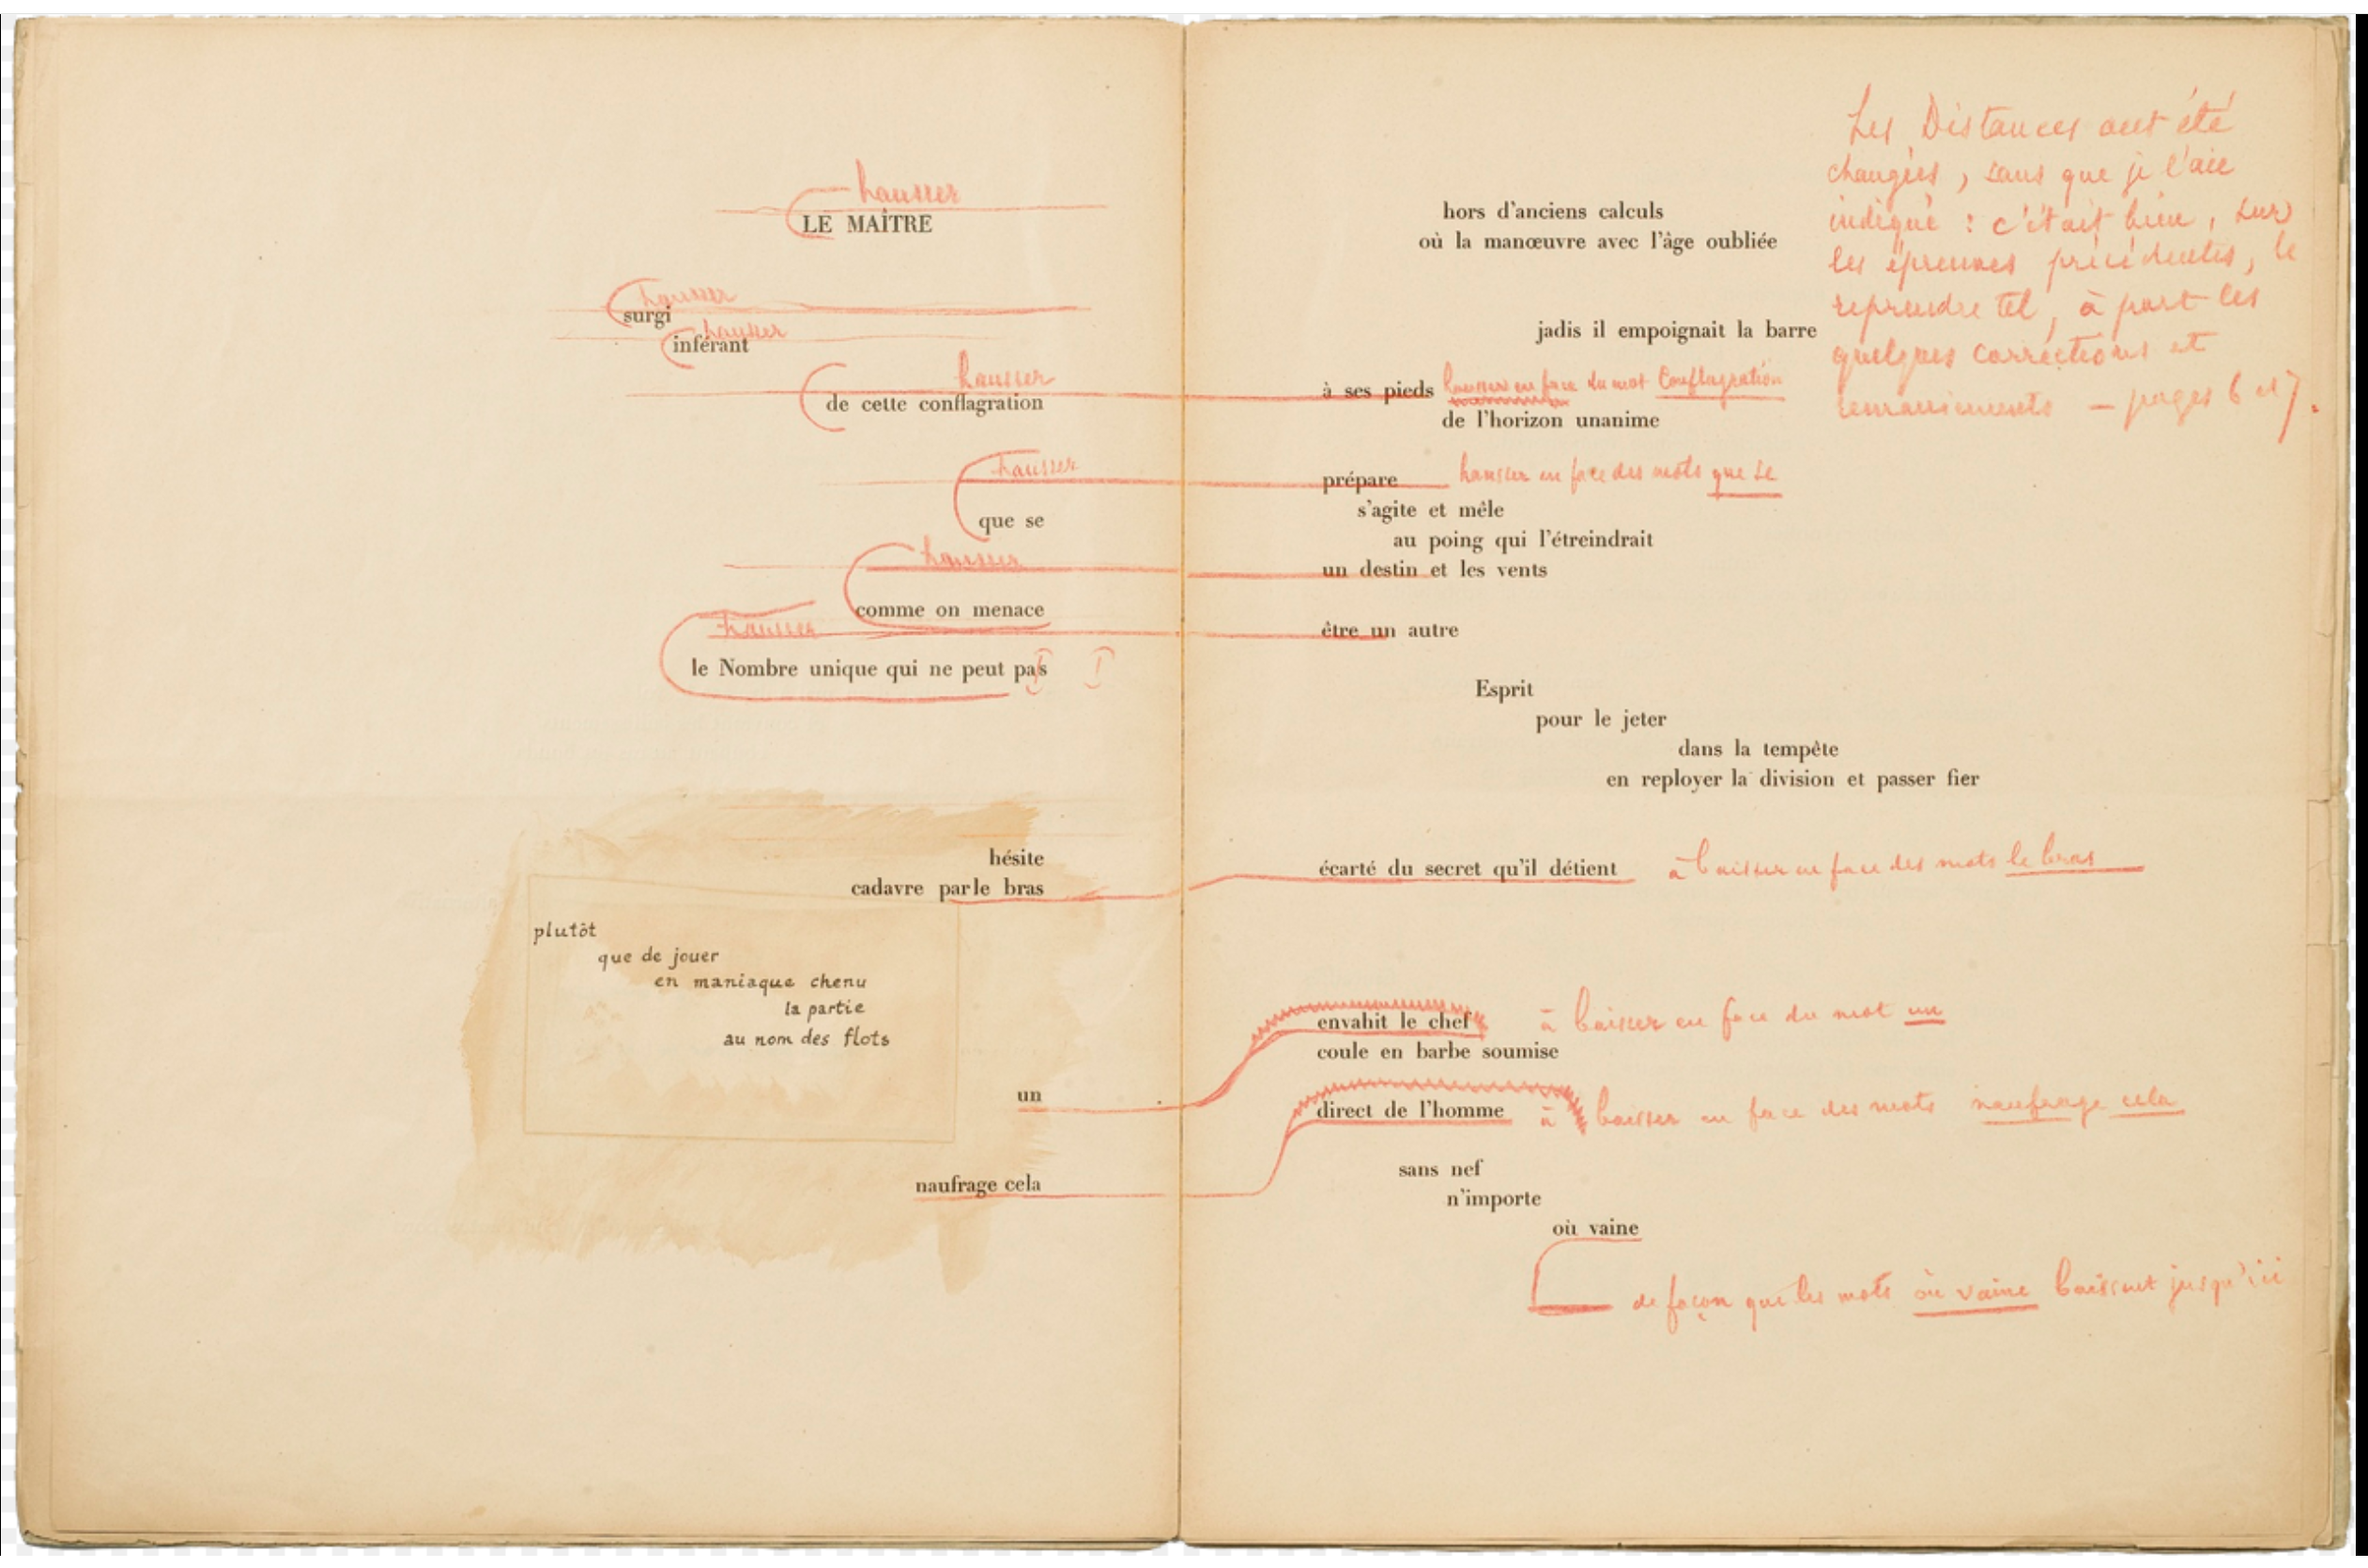 hausser
LE MAÎTRE
hausser
surgi
hausser
inférant
hausser
de cette conflagration
hausser
que se
hausser
comme on menace
hausser
le Nombre unique qui ne peut pas
hésite
cadavre parle bras
plutôt
que de jouer
en maniaque chenu
la partie
au nom des flots
un
naufrage cela
Les Distances ont été
changées, sans que je l'aie
indiqué : c'était bien, sur
les épreuves précédentes, le
reprendre tel, à part les
quelques corrections et
remaniements — pages 6 et 7.
hors d'anciens calculs
où la manœuvre avec l'âge oubliée
jadis il empoignait la barre
à ses pieds hausser en face du mot Conflagration
de l'horizon unanime
prépare hausser en face des mots que se
s'agite et mêle
au poing qui l'étreindrait
un destin et les vents
être un autre
Esprit
pour le jeter
dans la tempête
en reployer la division et passer fier
écarté du secret qu'il détient à baisser en face des mots le bras
envahit le chef à baisser en face du mot un
coule en barbe soumise
direct de l'homme à baisser en face des mots naufrage cela
sans nef
n'importe
où vaine
de façon que les mots où vaine baissent jusqu'ici